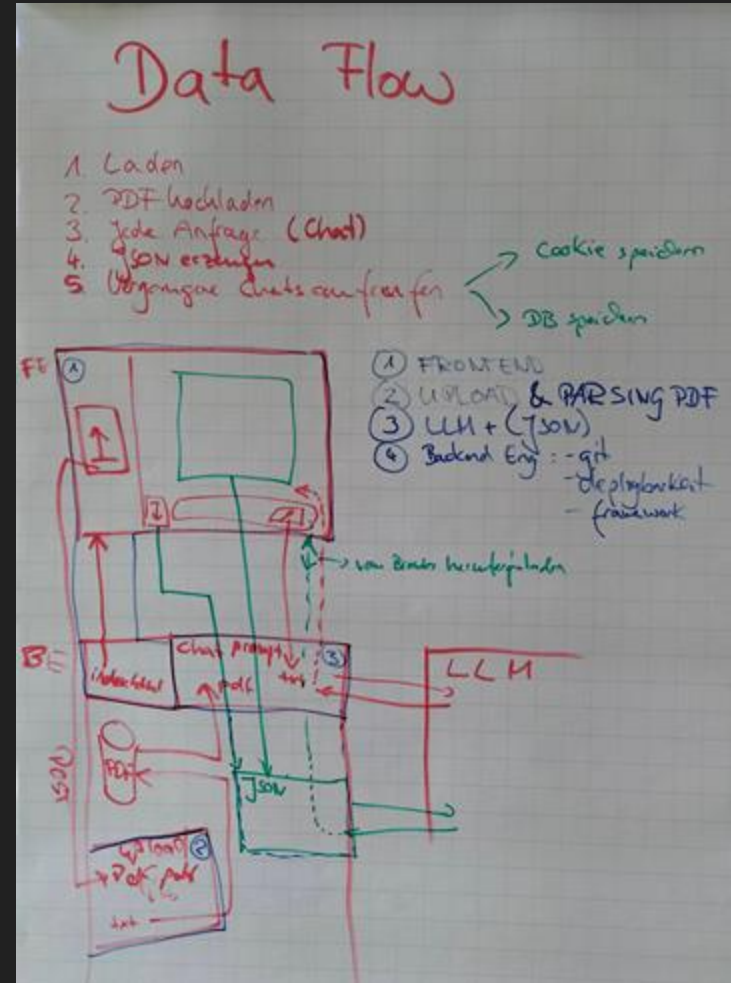 Data Flow
1. Laden
2. PDF hochladen
3. Jede Anfrage (Chat)
4. JSON erzeugen
5 Vergangene Chats aufrufen
Cookie speichern
DB speichern
FE
1
① FRONTEND
② UPLOAD & PARSING PDF
③ LLM + (JSON)
④ Backend Eng: - git
- deploybarkeit
- framework
von Browser herunterladen
BE
chat prompt
③
pdf
txt
LLM
PDF
JSON
upload ②
txt